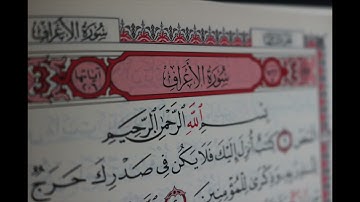 سُورَةُ الأَعْرَافِ
سُورَةُ الأَعْرَافِ
آيَاتُهَا ٢٠٦
بِسْمِ اللَّهِ الرَّحْمَٰنِ الرَّحِيمِ
كِتَابٌ أُنزِلَ إِلَيْكَ فَلَا يَكُن فِي صَدْرِكَ حَرَجٌ
وَذِكْرَىٰ لِلْمُؤْمِنِينَ